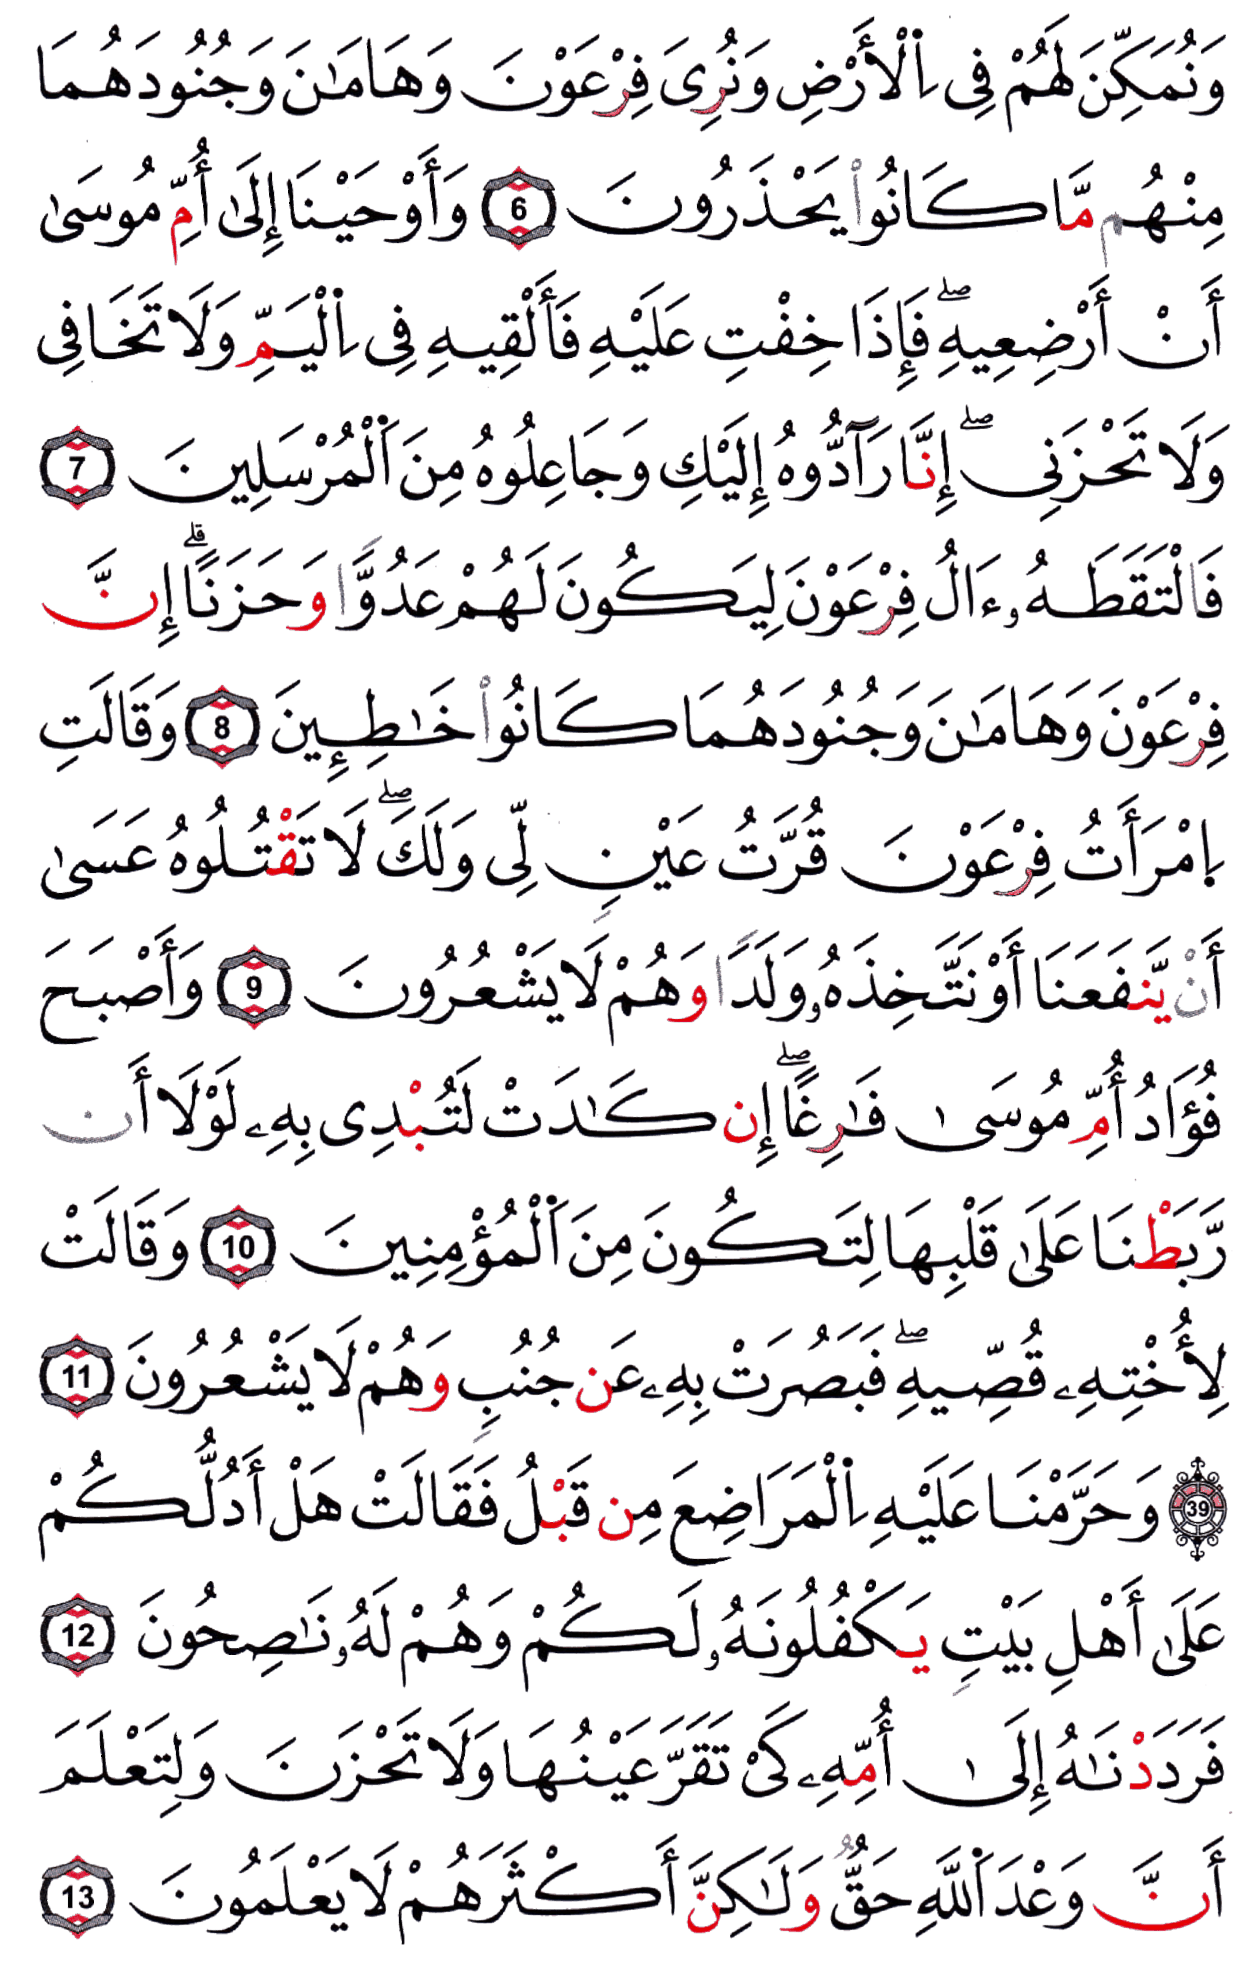 وَنُمَكِّنَ لَهُمْ فِي اِ۬لْأَرْضِ وَنُرِيَ فِرْعَوْنَ وَهَامَٰنَ وَجُنُودَهُمَا
مِنْهُم مَّا كَانُواْ يَحْذَرُونَ 6 وَأَوْحَيْنَا إِلَىٰ أُمِّ مُوسَىٰ
أَنْ أَرْضِعِيهِۖ فَإِذَا خِفْتِ عَلَيْهِ فَأَلْقِيهِ فِي اِ۬لْيَمِّ وَلَا تَخَافِي
وَلَا تَحْزَنِيۖ إِنَّا رَآدُّوهُ إِلَيْكِ وَجَاعِلُوهُ مِنَ اَ۬لْمُرْسَلِينَ 7
فَالْتَقَطَهُۥ ءَالُ فِرْعَوْنَ لِيَكُونَ لَهُمْ عَدُوًّا وَحَزَنًاۗ إِنَّ
فِرْعَوْنَ وَهَامَٰنَ وَجُنُودَهُمَا كَانُواْ خَٰطِـِٕينَ 8 وَقَالَتِ
اِ۪مْرَأَتُ فِرْعَوْنَ قُرَّتُ عَيْنٍ لِّي وَلَكَۖ لَا تَقْتُلُوهُ عَسَىٰ
أَنْ يَّنفَعَنَا أَوْ نَتَّخِذَهُۥ وَلَدًا وَهُمْ لَا يَشْعُرُونَ 9 وَأَصْبَحَ
فُؤَادُ أُمِّ مُوسَىٰ فَٰرِغًاۖ إِن كَٰدَتْ لَتُبْدِي بِهِۦ لَوْلَا أَن
رَّبَطْنَا عَلَىٰ قَلْبِهَا لِتَكُونَ مِنَ اَ۬لْمُؤْمِنِينَ 10 وَقَالَتْ
لِأُخْتِهِۦ قُصِّيهِۖ فَبَصُرَتْ بِهِۦ عَن جُنُبٍ وَهُمْ لَا يَشْعُرُونَ 11
39 وَحَرَّمْنَا عَلَيْهِ اِ۬لْمَرَاضِعَ مِن قَبْلُ فَقَالَتْ هَلْ أَدُلُّكُمْ
عَلَىٰ أَهْلِ بَيْتٍ يَكْفُلُونَهُۥ لَكُمْ وَهُمْ لَهُۥ نَٰصِحُونَ 12
فَرَدَدْنَٰهُ إِلَىٰ أُمِّهِۦ كَيْ تَقَرَّ عَيْنُهَا وَلَا تَحْزَنَ وَلِتَعْلَمَ
أَنَّ وَعْدَ اَ۬للَّهِ حَقٌّ وَلَٰكِنَّ أَكْثَرَهُمْ لَا يَعْلَمُونَ 13